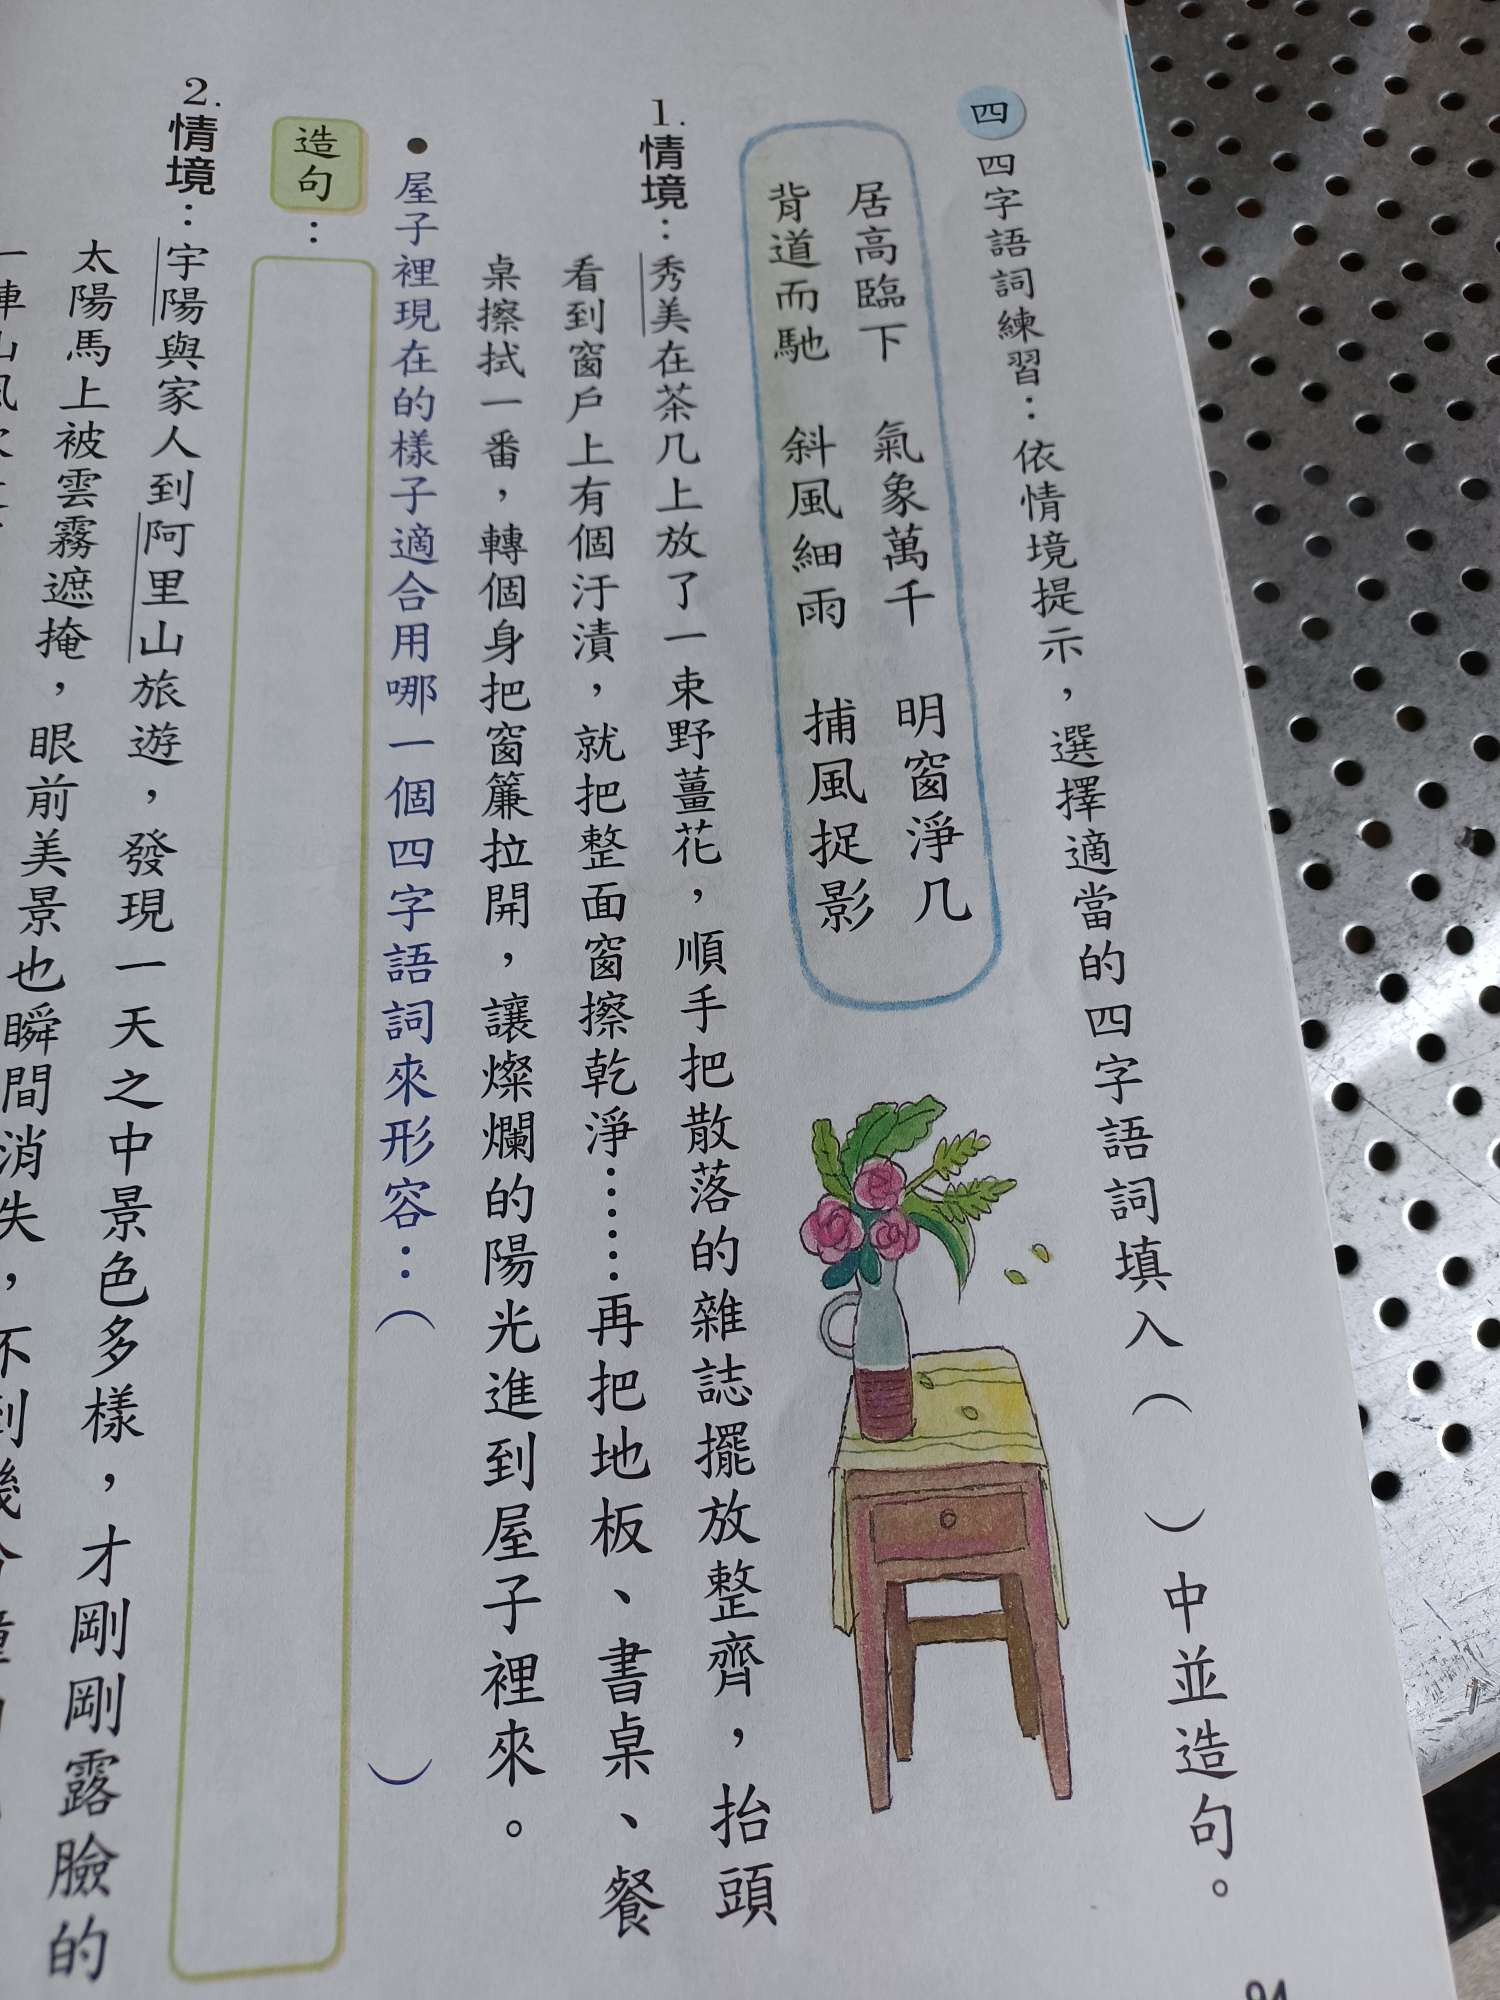 四 四字語詞練習：依情境提示，選擇適當的四字語詞填入（　）中並造句。
居高臨下　氣象萬千　明窗淨几
背道而馳　斜風細雨　捕風捉影
1. 情境：秀美在茶几上放了一束野薑花，順手把散落的雜誌擺放整齊，抬頭
看到窗戶上有個汙漬，就把整面窗擦乾淨……再把地板、書桌、餐
桌擦拭一番，轉個身把窗簾拉開，讓燦爛的陽光進到屋子裡來。
●屋子裡現在的樣子適合用哪一個四字語詞來形容：（　）
造句：
2. 情境：宇陽與家人到阿里山旅遊，發現一天之中景色多樣，才剛剛露臉的
太陽馬上被雲霧遮掩，眼前美景也瞬間消失，不到幾分